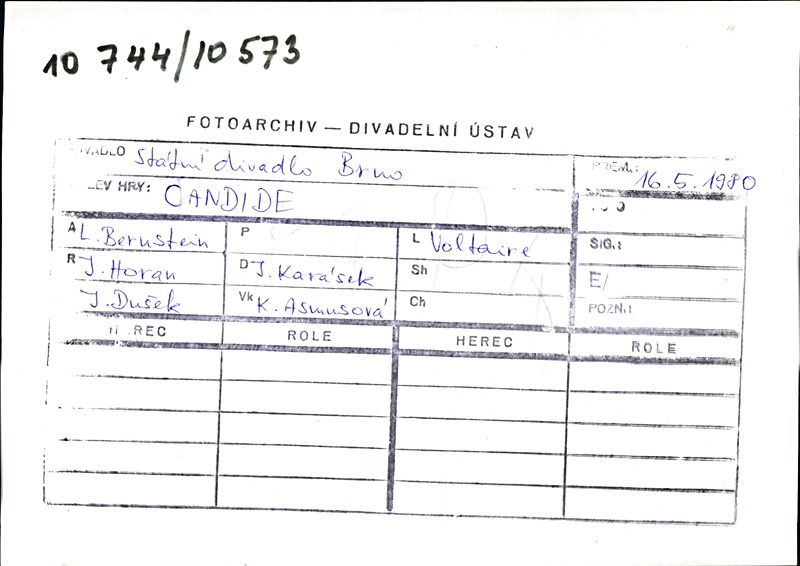 10 744/10 573
FOTOARCHIV — DIVADELNÍ ÚSTAV
Státní divadlo Brno
16.5.1980
HRY: CANDIDE
A L. Bernstein P L Voltaire SIG.:
R J. Horan D J. Karásek Sh E/
J. Dušek Vk K. Asmusová Ch POZN.:
ROLE HEREC ROLE